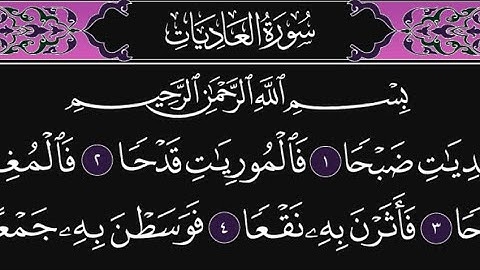 سُورَةُ العَادِيَاتِ
بِسۡمِ ٱللَّهِ ٱلرَّحۡمَٰنِ ٱلرَّحِيمِ
ضَبۡحًا ١ فَٱلۡمُورِيَٰتِ قَدۡحًا ٢
٣ فَأَثَرۡنَ بِهِۦ نَقۡعًا ٤ فَوَسَطۡنَ بِهِۦ